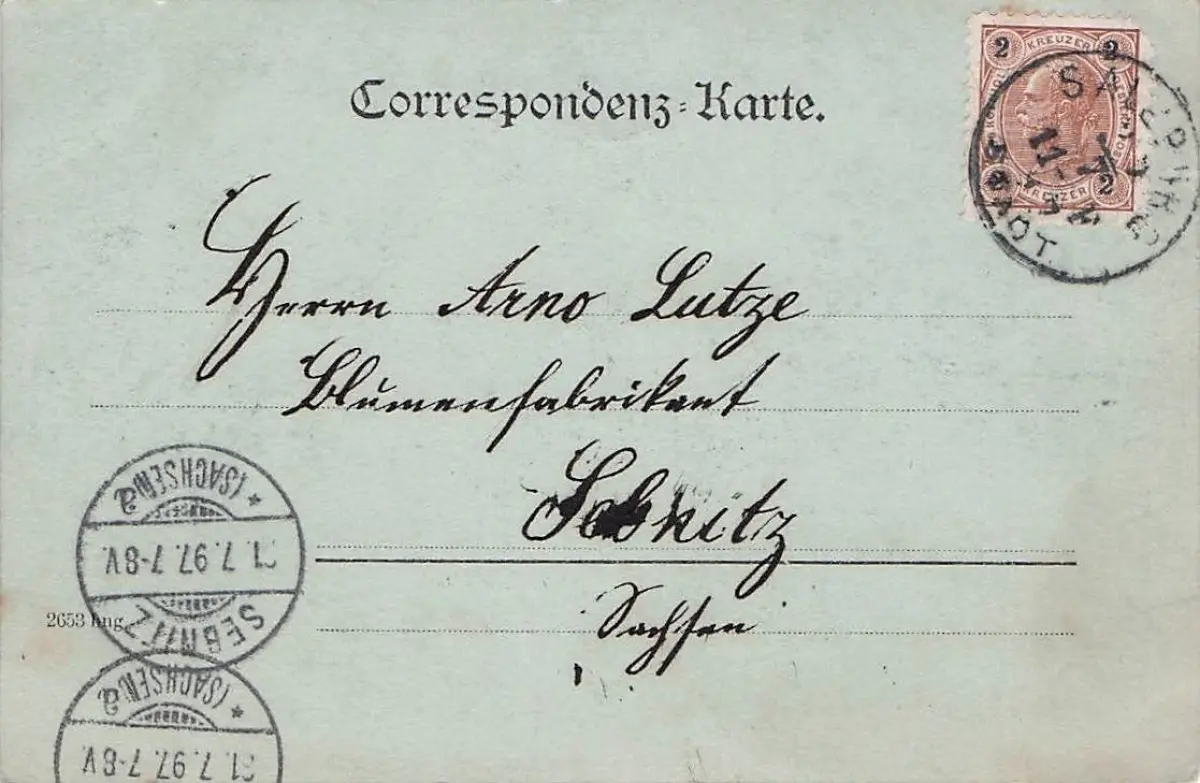 Correspondenz=Karte.
2 KREUZER 2
KREUZER 2
SALZBURG
STADT
Herrn Arno Lutze
Blumenfabrikant
Sebnitz
Sachsen
2653 hng
SEBNITZ
1.7.97.7-8V.
* (SACHSEN) a
1.7.97.7-8V.
* (SACHSEN) a